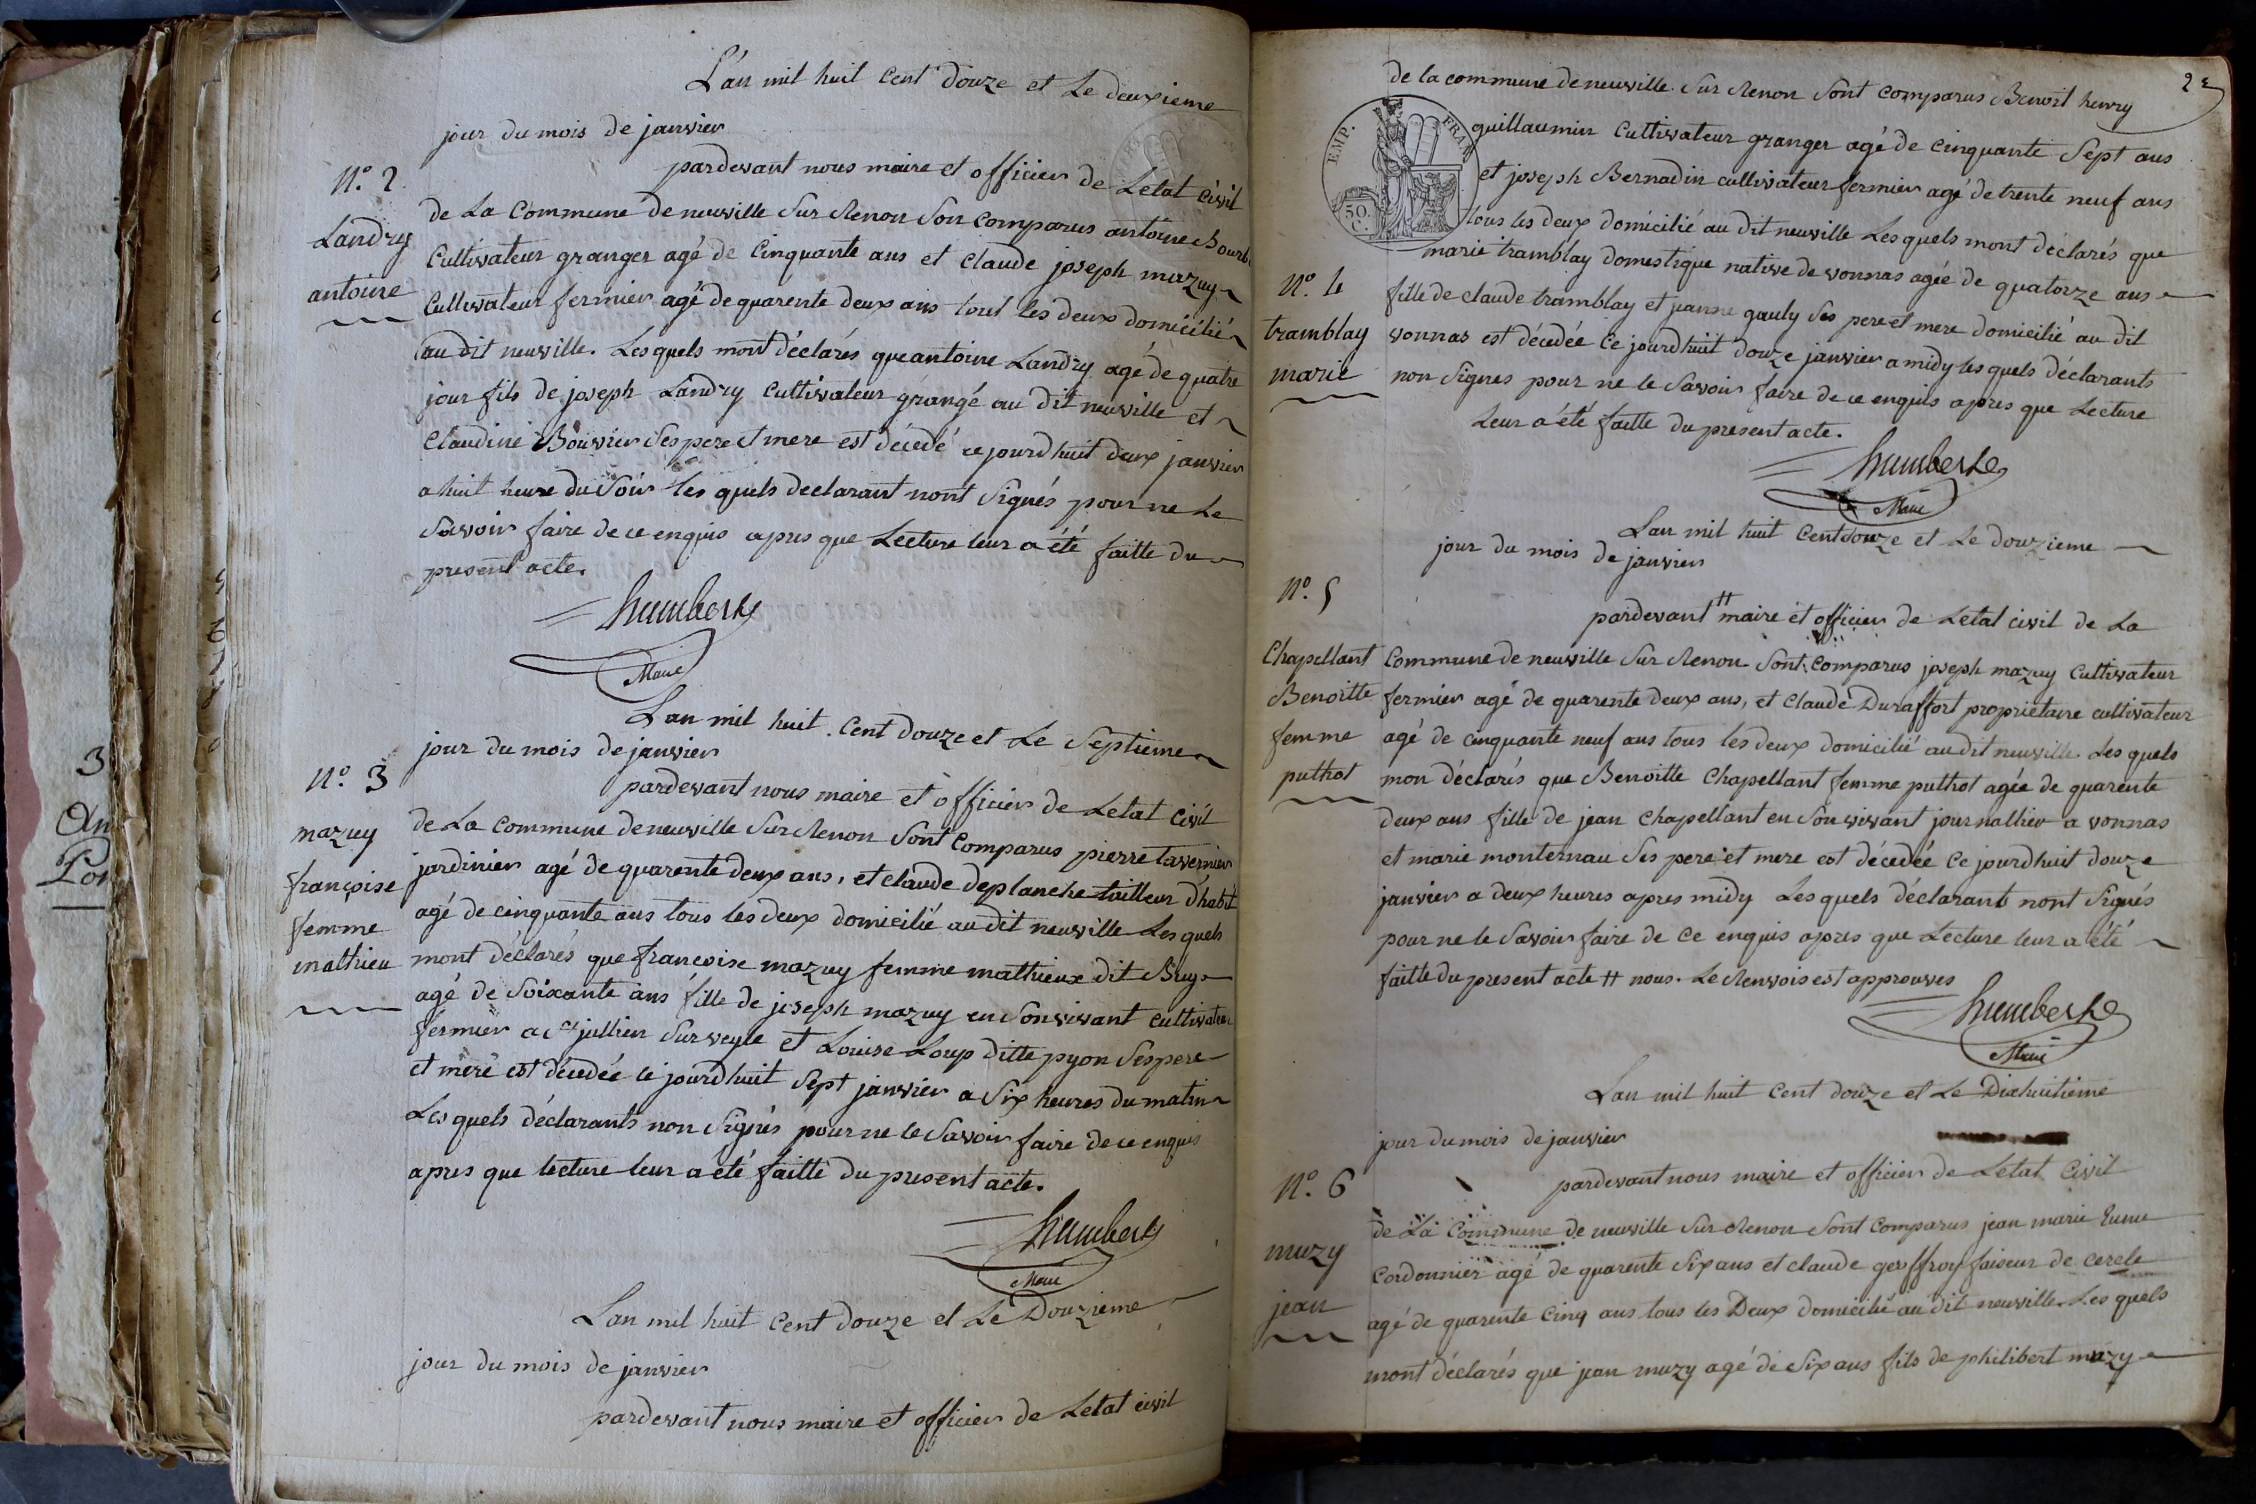 L'an mil huit cent douze et Le deuxieme
jour du mois de janvier
N.º 2.
Landry
antoine
pardevant nous maire et officier de Letat civil
de La Commune de neuville Sur Renon Son comparus antoine Bourb
Cultivateur granger agé de Cinquante ans et Claude joseph mazuy
Cultivateur fermier agé de quarente deux ans tout les deux domicilié
au dit neuville. Les quels mont déclarés que antoine Landry agé de quatre
jour fils de joseph Landry Cultivateur grangé au dit neuville et
Claudine Bouvier Ses pere et mere est décedé ce jourdhuit deux janvier
a huit heure du Soir les quels declarant nont Signés pour ne Le
Savoir faire de ce enquis apres que Lecture leur a été faitte du
present acte.
humbert
Maire
Lan mil huit cent douze et Le Septieme
jour du mois de janvier
N.º 3
mazuy
françoise
femme
mathieu
pardevant nous maire et officier de Letat Civil
de La Commune de neuville Sur Renon Sont Comparus pierre tavernier
jardinier agé de quarente deux ans, et claude deplanche tailleur d'habit
agé de cinquante ans tous les deux domicilié au dit neuville Les quels
mont déclarés que françoise mazuy femme mathieux dit Bruy
agé de Soixante ans fille de joseph mazuy en Son vivant cultivateur
fermier a St jullien Sur veyle et Louise Loup ditte pyon Ses pere
et mere est décedée ce jourdhuit Sept janvier a Six heures du matin
Les quels déclarants non Signés pour ne le Savoir faire de ce enquis
apres que lecture leur a été faitte du present acte.
humbert
Maire
Lan mil huit cent douze et Le Douzieme
jour du mois de janvier
pardevant nous maire et officier de Letat civil
2
de la commune de neuville Sur Renon Sont Comparus Benoit henry
EMP. FRAN
50. C.
guillaumin Cultivateur granger agé de cinquante Sept ans
et joseph Bernadin cultivateur fermier agé de trente neuf ans
tous les deux domicilié au dit neuville Les quels mont déclarés que
marie tramblay domestique native de vonnas agée de quatorze ans
N.º 4
tramblay
marie
fille de claude tramblay et jeanne gauly Ses pere et mere domicilié au dit
vonnas est décedée Ce jourdhuit douze janvier a midy les quels déclarants
non Signes pour ne le Savoir faire de ce enquis apres que Lecture
Leur a été faitte du present acte.
humbert
Maire
Lan mil huit Cent douze et Le douzieme
jour du mois de janvier
N.º 5
Chapellant
Benoitte
femme
puthot
pardevant # maire et officier de Letat civil de La
Commune de neuville Sur Renon Sont Comparus joseph mazuy Cultivateur
fermier agé de quarente deux ans, et Claude Duraffort propriétaire cultivateur
agé de cinquante neuf ans tous les deux domicilié au dit neuville Les quels
mon déclarés que Benoitte Chapellant femme puthot agée de quarente
deux ans fille de jean Chapellant en Son vivant journallier a vonnas
et marie monternau Ses pere et mere est décedée Ce jourdhuit douze
janvier a deux heures apres midy Les quels déclarant nont Signés
pour ne le Savoir faire de ce enquis apres que Lecture leur a été
faitte du present acte # nous. Le Renvois est approuves
humbert
Maire
Lan mil huit cent douze et Le Dixhuitieme
jour du mois de janvier
N.º 6
muzy
jean
pardevant nous maire et officier de Letat Civil
de La Commune de neuville Sur Renon Sont Comparus jean marie
Cordonnier agé de quarente Six ans et claude geoffroy faiseur de cercle
agé de quarente cinq ans tous les Deux domicilié au dit neuville Les quels
mont déclarés que jean muzy agé de Six ans fils de philibert muzy